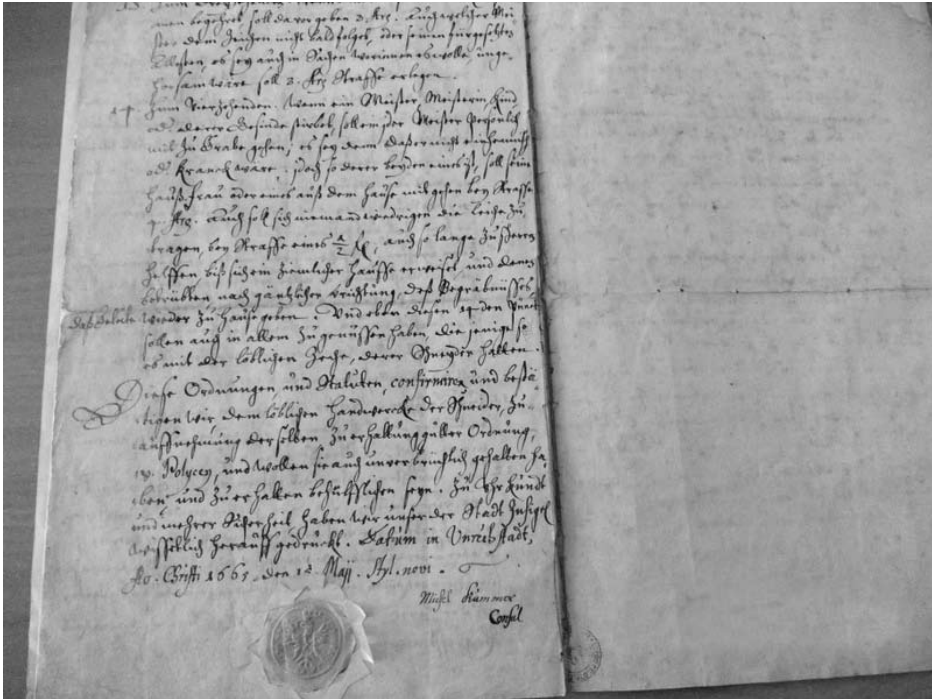 men begehret, soll davor geben 3. Arg. Auch welcher Mei
ster dem Zeichen nicht bald folget, oder seinen fürgesetzten
Eltesten, es sey auch in Sachen worinnen es wolle, unge-
horsam wäre soll 3. Arg Straffe erlegen.
14. Zum Vierzehenden. Wenn ein Meister, Meisterin, Kind
od. derer Gesinde stirbet, soll ein jeder Meister Persönlich
mit zu Grabe gehen, es sey denn daß er nicht einheimisch
od. Kranck wäre, jdoch so derer beyden eines ist, soll seine
Hauß-Frau oder eines auß dem Hause mit gehen bey Straffe
Arg. Auch soll sich niemand wiedrigen die Leiche zu
tragen, bey Straffe eines ½ auch so lange zu
helffen, biß sich ein ziemlicher Hauffe erweiset, und denen
betrübten nach gäntzlicher deß Begräbnüsses
das Geleite wieder zu Hause geben. Und eben diesen 14 den Punct
sollen auch in allem zu genüssen haben, die jenige so
es mit der löblichen Zeche, derer Schneyder halten.
Diese Ordnungen, und Statuten, confirmiren und bestä
tigen wir, dem löblichen Handwercke der Schneider, zu
auffnehmung derselben, zu erhaltung gutter Ordnung,
v. Policey, und wollen sie auch unverbrüchlich gehalten ha
ben und zu erhalten behülfflichen seyn. Zu Uhrkundt
und mehrer Sicherheit haben wir unser der Stadt Insigel
wissetlich herauff gedruckt. Datum in Unruhstadt,
Ao. Christi 1665, den 12 Maji. Styl. novi.
Michel Kummer
Consul